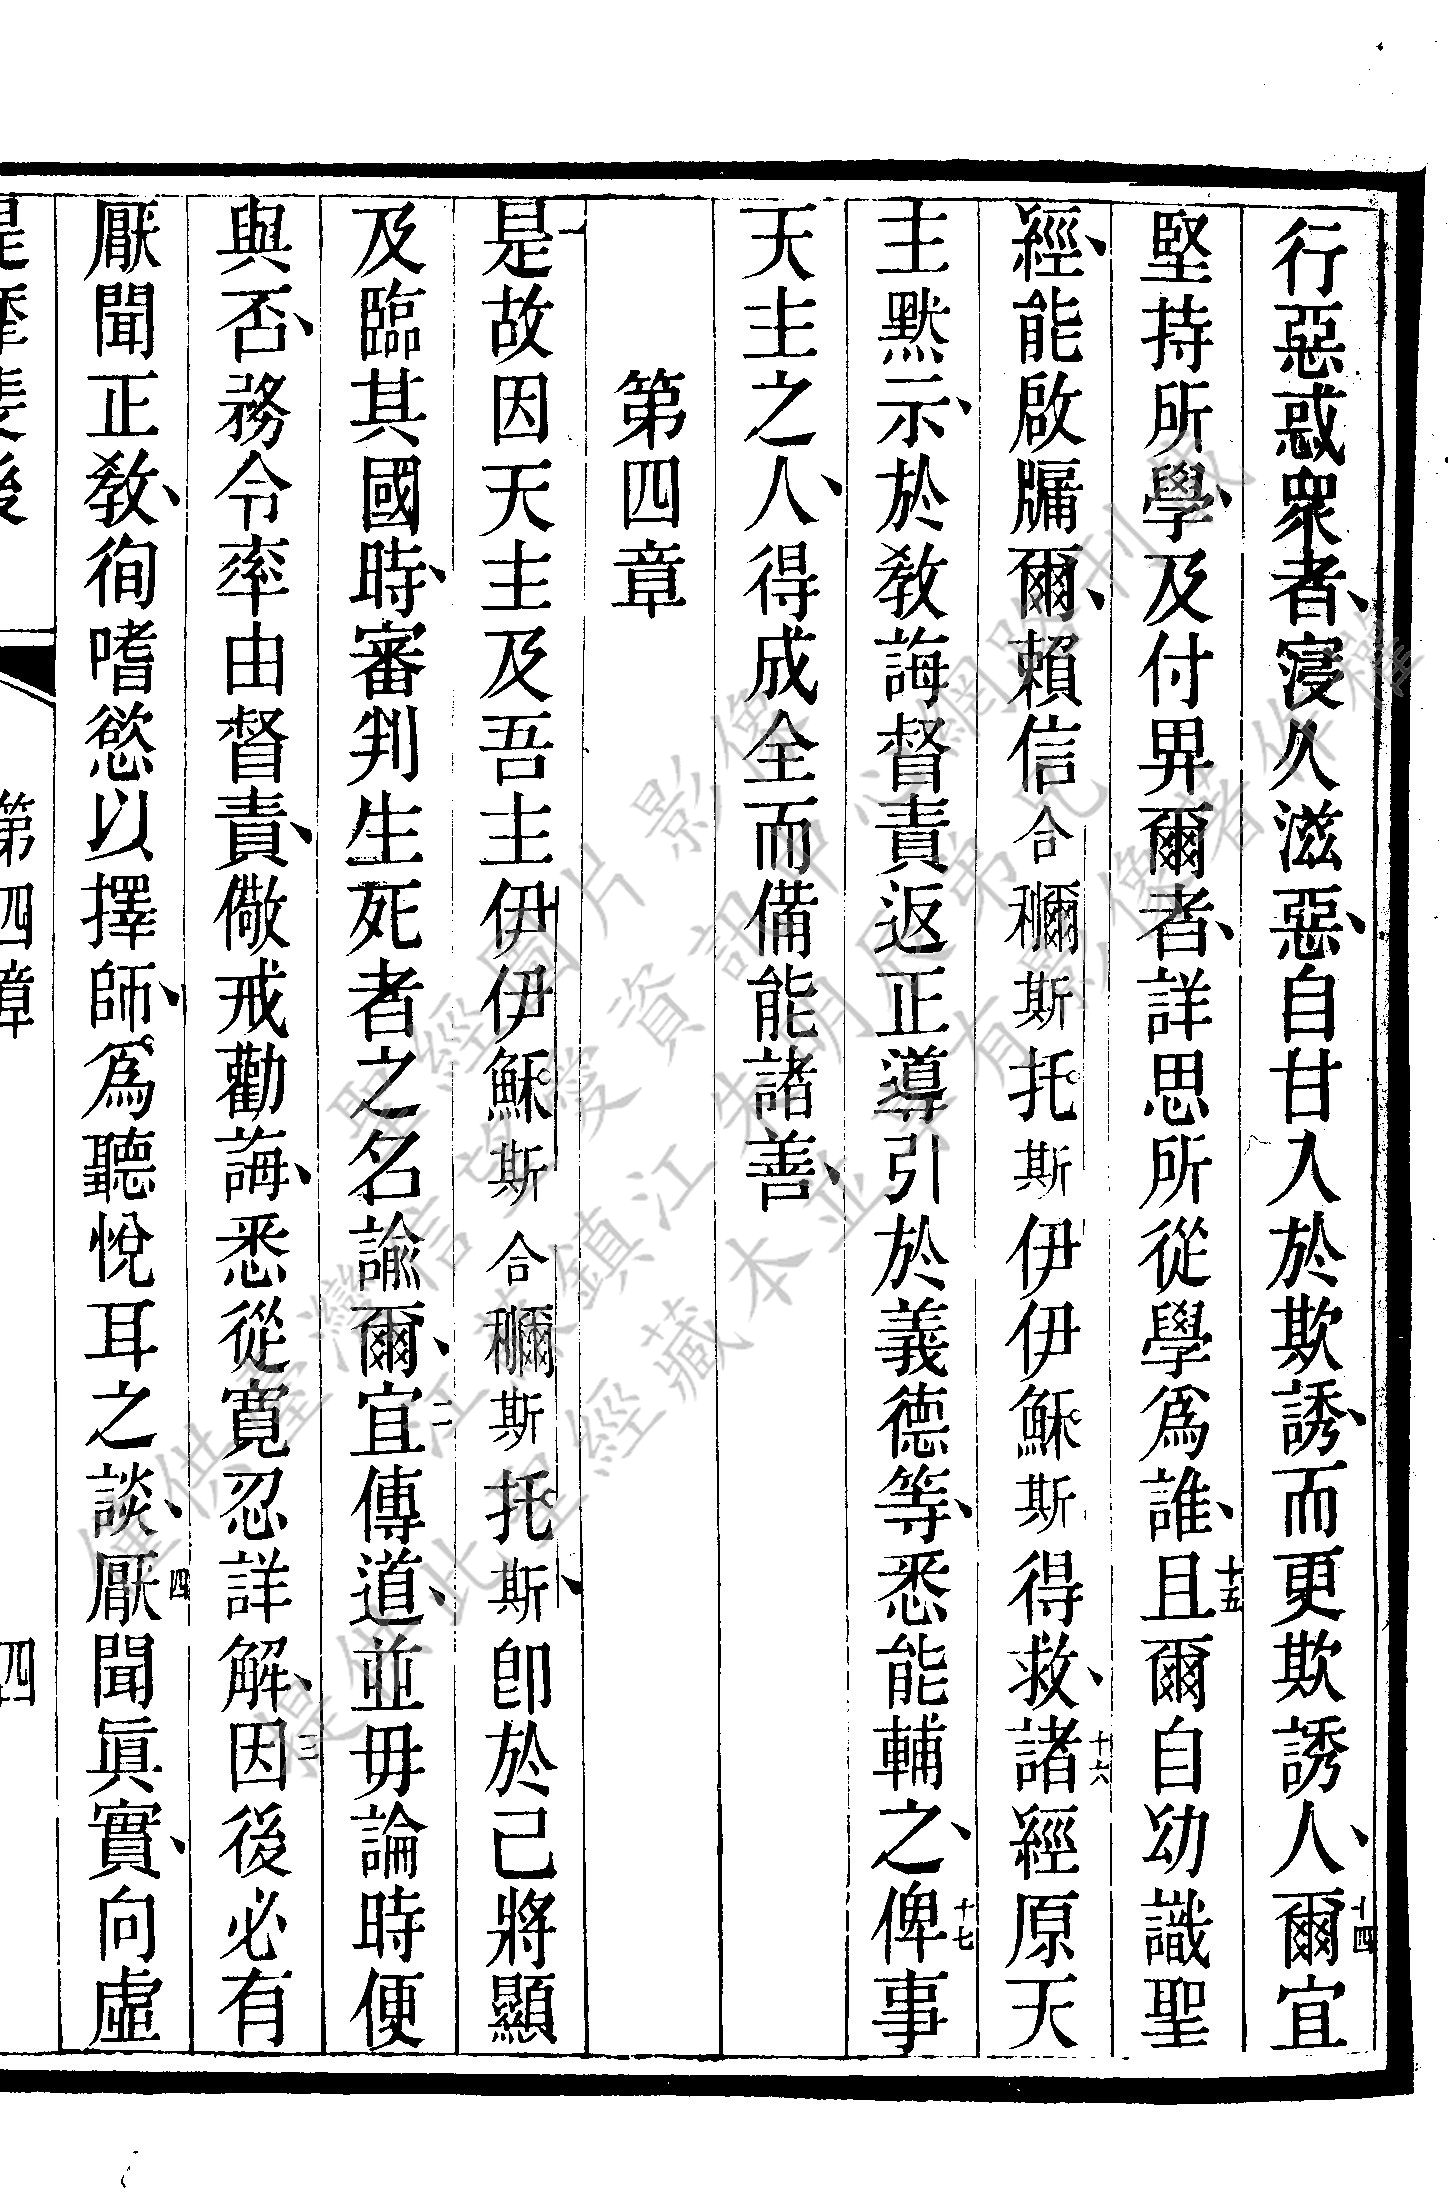 行惡惑衆者、寖久滋惡、自甘入於欺誘、而更欺誘人、十四爾宜
堅持所學、及付畀爾者、詳思所從學爲誰、十五且爾自幼識聖
經、能啟牖爾、賴信合穪斯托斯伊伊穌斯得救、十六諸經原天
主默示、於敎誨督責返正導引於義德等、悉能輔之、十七俾事
天主之人、得成全而備能諸善、
第四章
一是故因天主及吾主伊伊穌斯合穪斯托斯、卽於己將顯
及臨其國時、審判生死者之名諭爾、二宜傳道、並毋論時便
與否、務令率由督責、儆戒勸誨、悉從寬忍詳解、三因後必有
厭聞正敎、徇嗜慾以擇師、爲聽悅耳之談、四厭聞眞實、向虛
第四章
四
僅供臺灣信望愛資訊中心網路刊載
聖經圖片影像